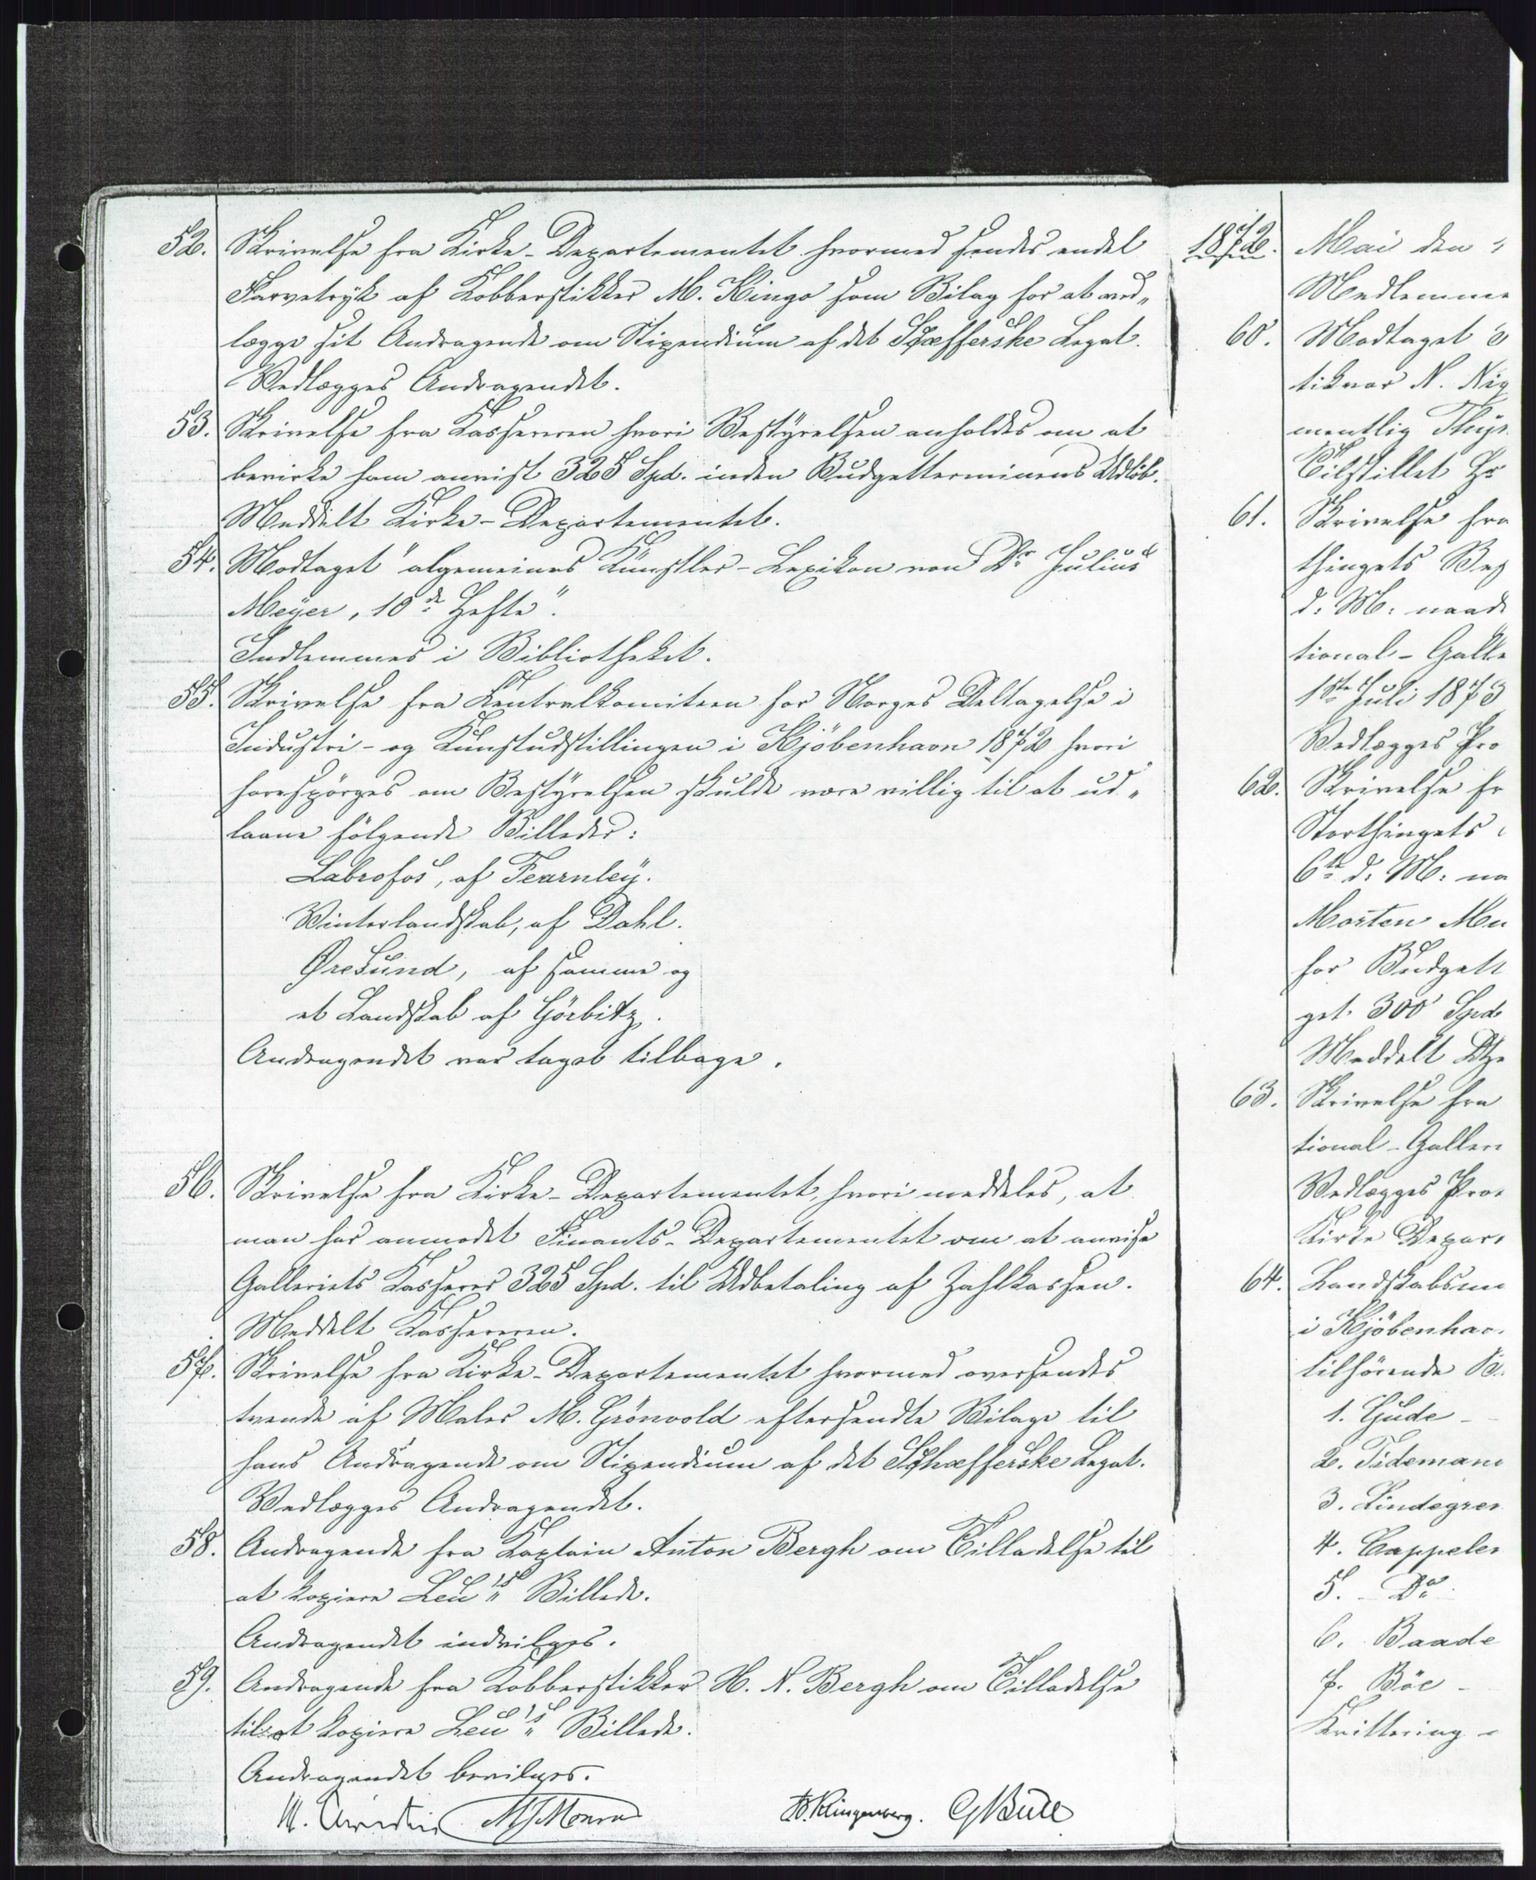 52. Skrivelse fra Kirke-Departementet hvormed sendes endel
Farvetryk af Kobberstikker M. Kingo som Bilag for at ved„
lægge sit Andragende om Stipendium af det Schæfferske Legat.
Vedlægges Andragendet.
53. Skrivelse fra Kassereren hvori Bestyrelsen anholdes om at
bevirke ham anvist 325 Spd. inden Budgetterminens Udløb.
Meddelt Kirke-Departementet.
54. Modtaget "algemeines Künstler-Lexikon von Dr Julius
Meyer, 10de Hefte".
Indlemmes i Bibliotheket.
55. Skrivelse fra Centralkomiteen for Norges Deltagelse i
Industri- og Kunstudstillingen i Kjöbenhavn 1872 hvori
forespörges om Bestyrelsen skulde være villig til at ud„
laane fölgende Billeder:
Labrofos, af Fearnley.
Vinterlandskab, af Dahl.
Øresund, af samme og
et Landskab af Görbitz.
Andragendet var taget tilbage.
56. Skrivelse fra Kirke-Departementet, hvori meddeles, at
man har anmodet Finants-Departementet om at anvise
Galleriets Kasserer 325 Spd. til Udbetaling af Zahlkassen.
Meddelt Kassereren.
57. Skrivelse fra Kirke-Departementet hvormed oversendes
tvende af Maler M. Grönvold eftersendte Bilage til
hans Andragende om Stipendium af det Schæfferske Legat.
Vedlægges Andragendet.
58. Andragende fra Kaptain Anton Bergh om Tilladelse til
at kopiere Leu's Billede.
Andragendet indvilges.
59. Andragende fra Kobberstikker H. N. Bergh om Tilladelse
til at kopiere Leu's Billede.
Andragendet bevilges.
MJMonrad O Klingenberg. GBull
1872. Mai den
Medlemme
60. Modtaget
tikvar N. Nig
mentlig
Tilstillet Hr
61. Skrivelse fra
thingets Bes
d: M: naad
tional-Galle
1ste Juli 1873
Vedlægges Pro
62. Skrivelse fr
Storthingets
6te d: M: na
Morten Mü
for Budgett
get 300 Spd
Meddelt
63. Skrivelse fra
tional-Galleri
Vedlægges Pro
Kirke Depar
64. Landskabsm
i Kjöbenhav
tilhörende B
1. Gude -
2. Tidemand
3. Lindegren
4. Cappelen
5. - Do
6. Baade
7. Böe -
Kvittering